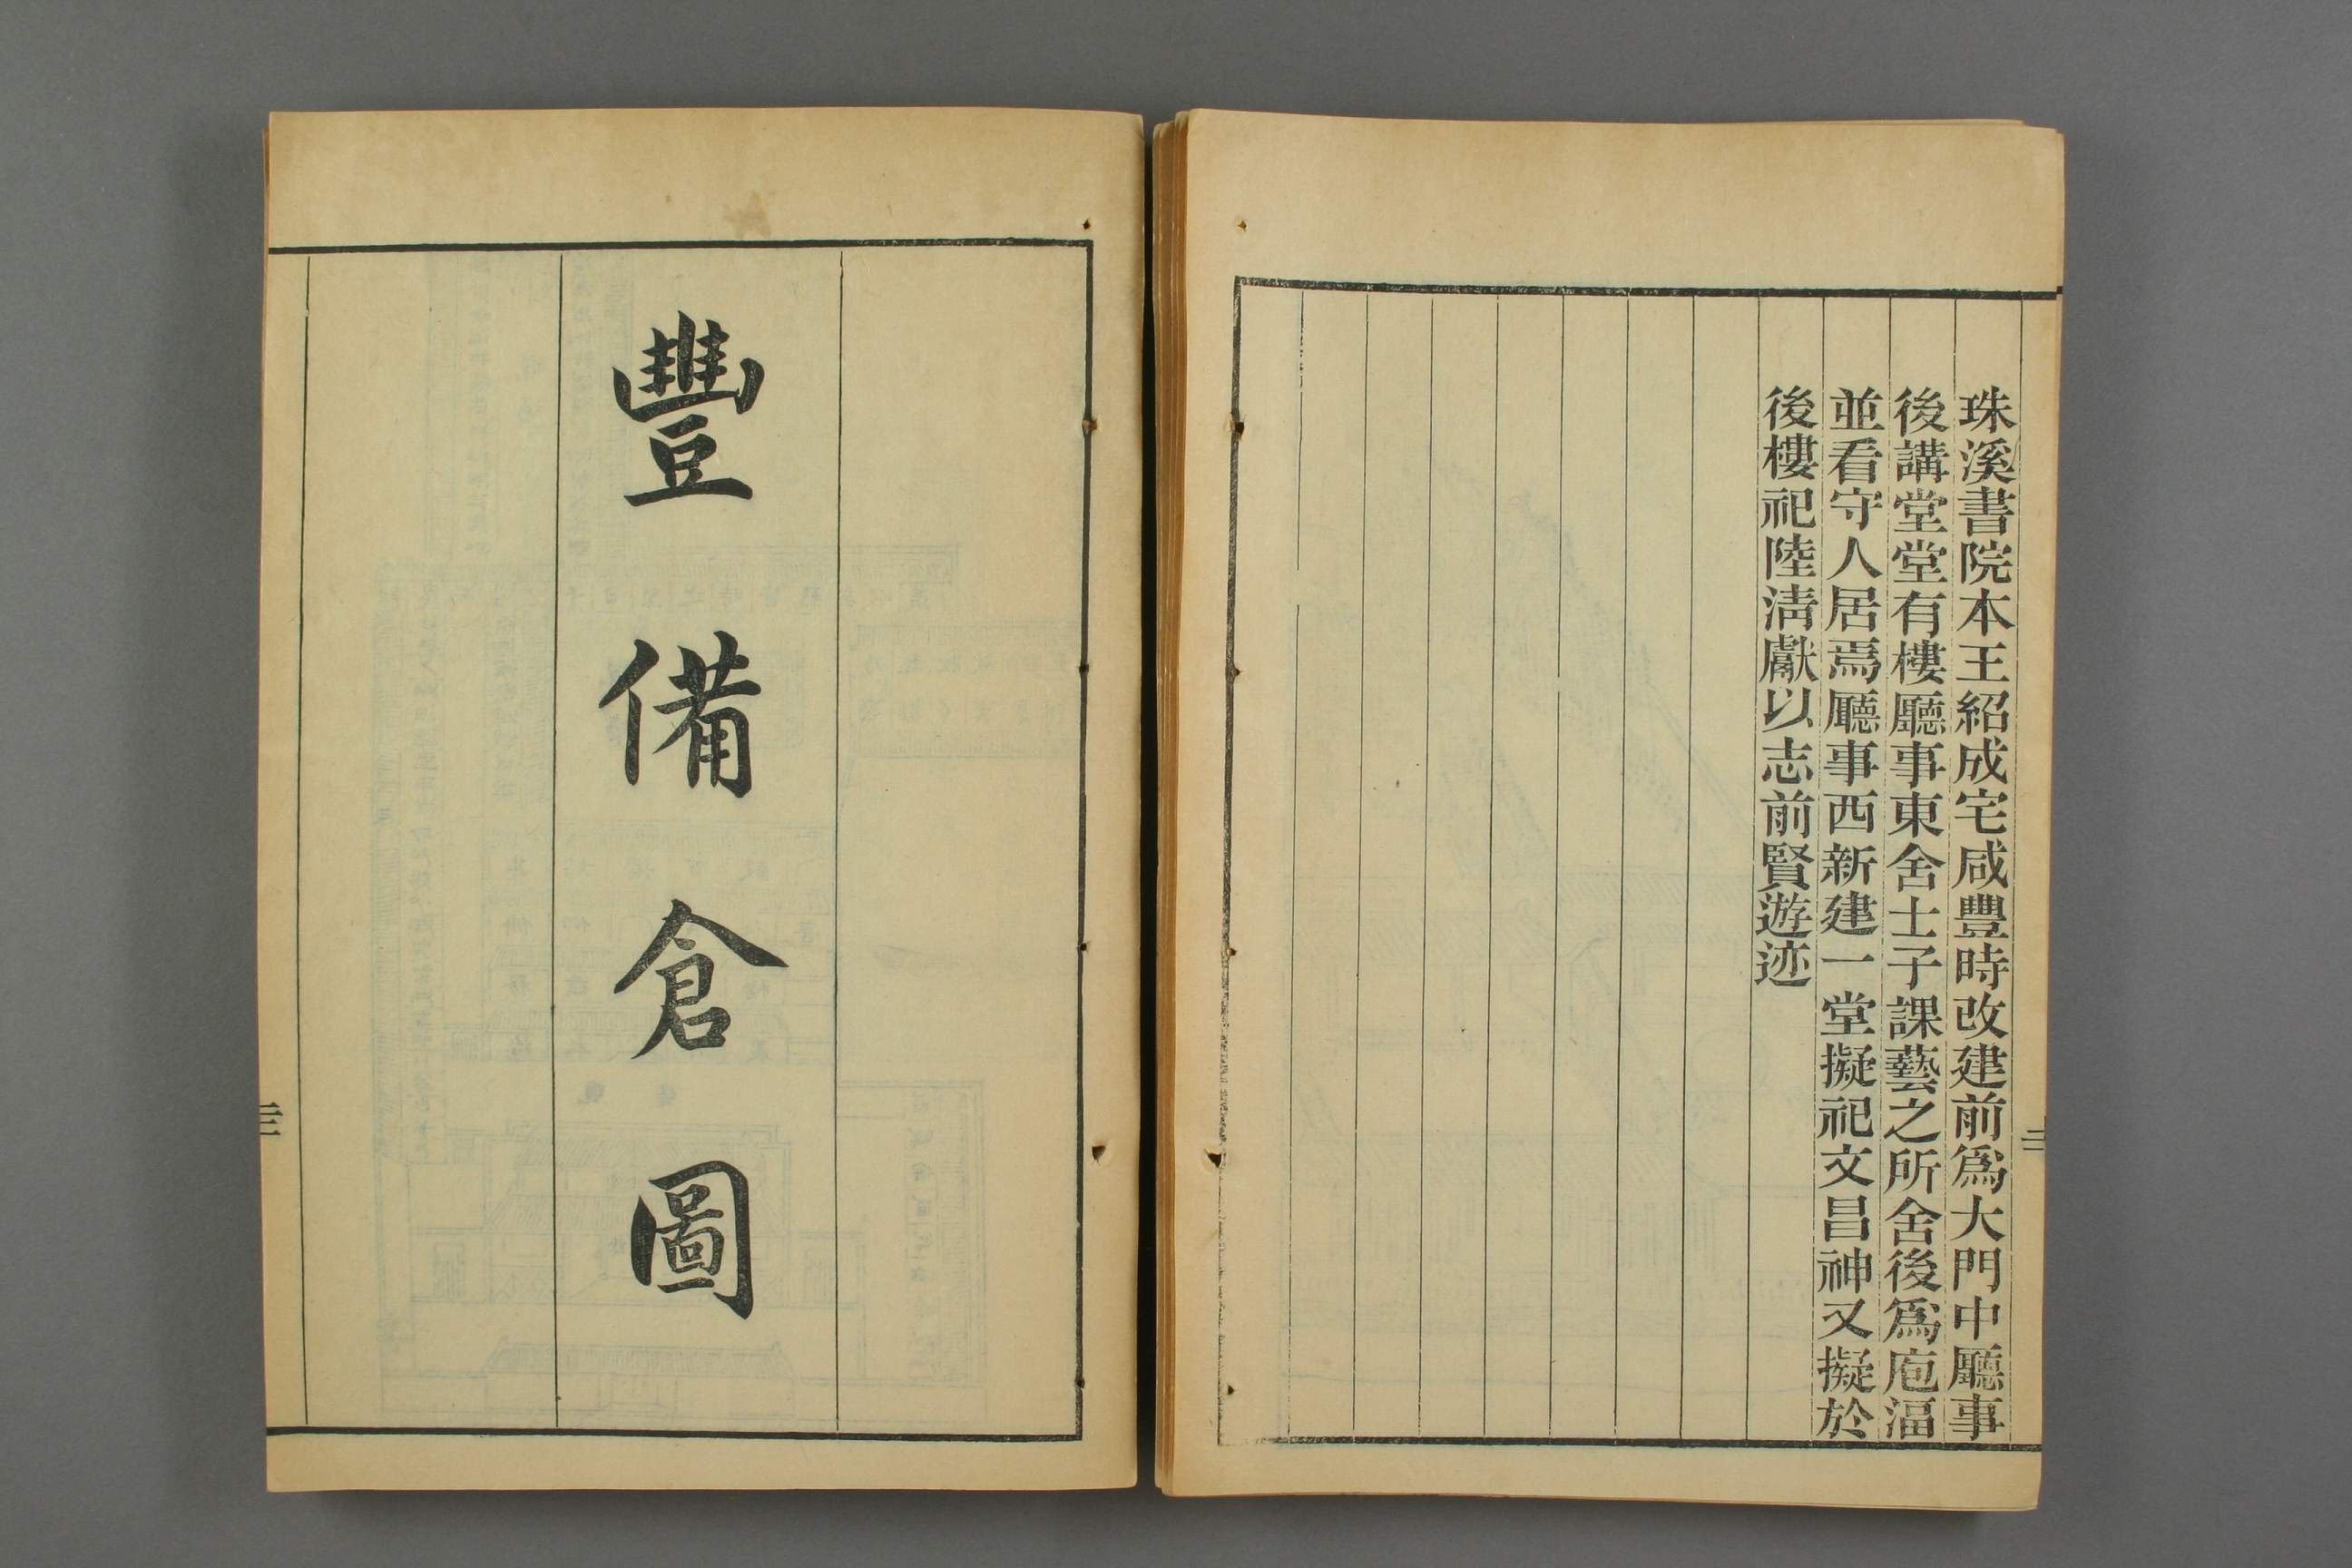 珠溪書院本王紹成宅咸豐時改建前爲大門中廳事
後講堂堂有樓廳事東舍士子課藝之所舍後爲庖湢
並看守人居焉廳事西新建一堂擬祀文昌神又擬於
後樓祀陸清獻以志前賢遊迹
豐備倉圖